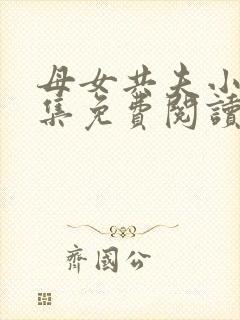 母女共夫小
集免費閱讀
齊國公